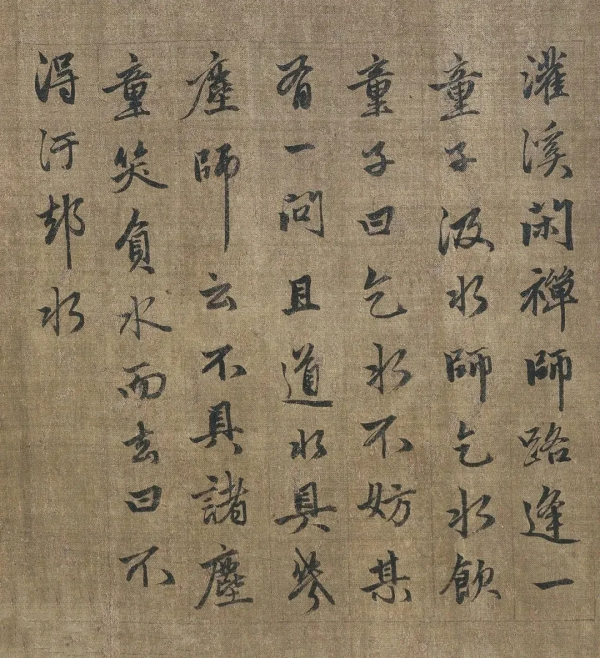 灌溪閑禪師路逢一
童子汲水師乞水飲
童子曰乞水不妨某
有一問且道水具幾
塵師云不具諸塵
童笑負水而去曰不
得汙却水